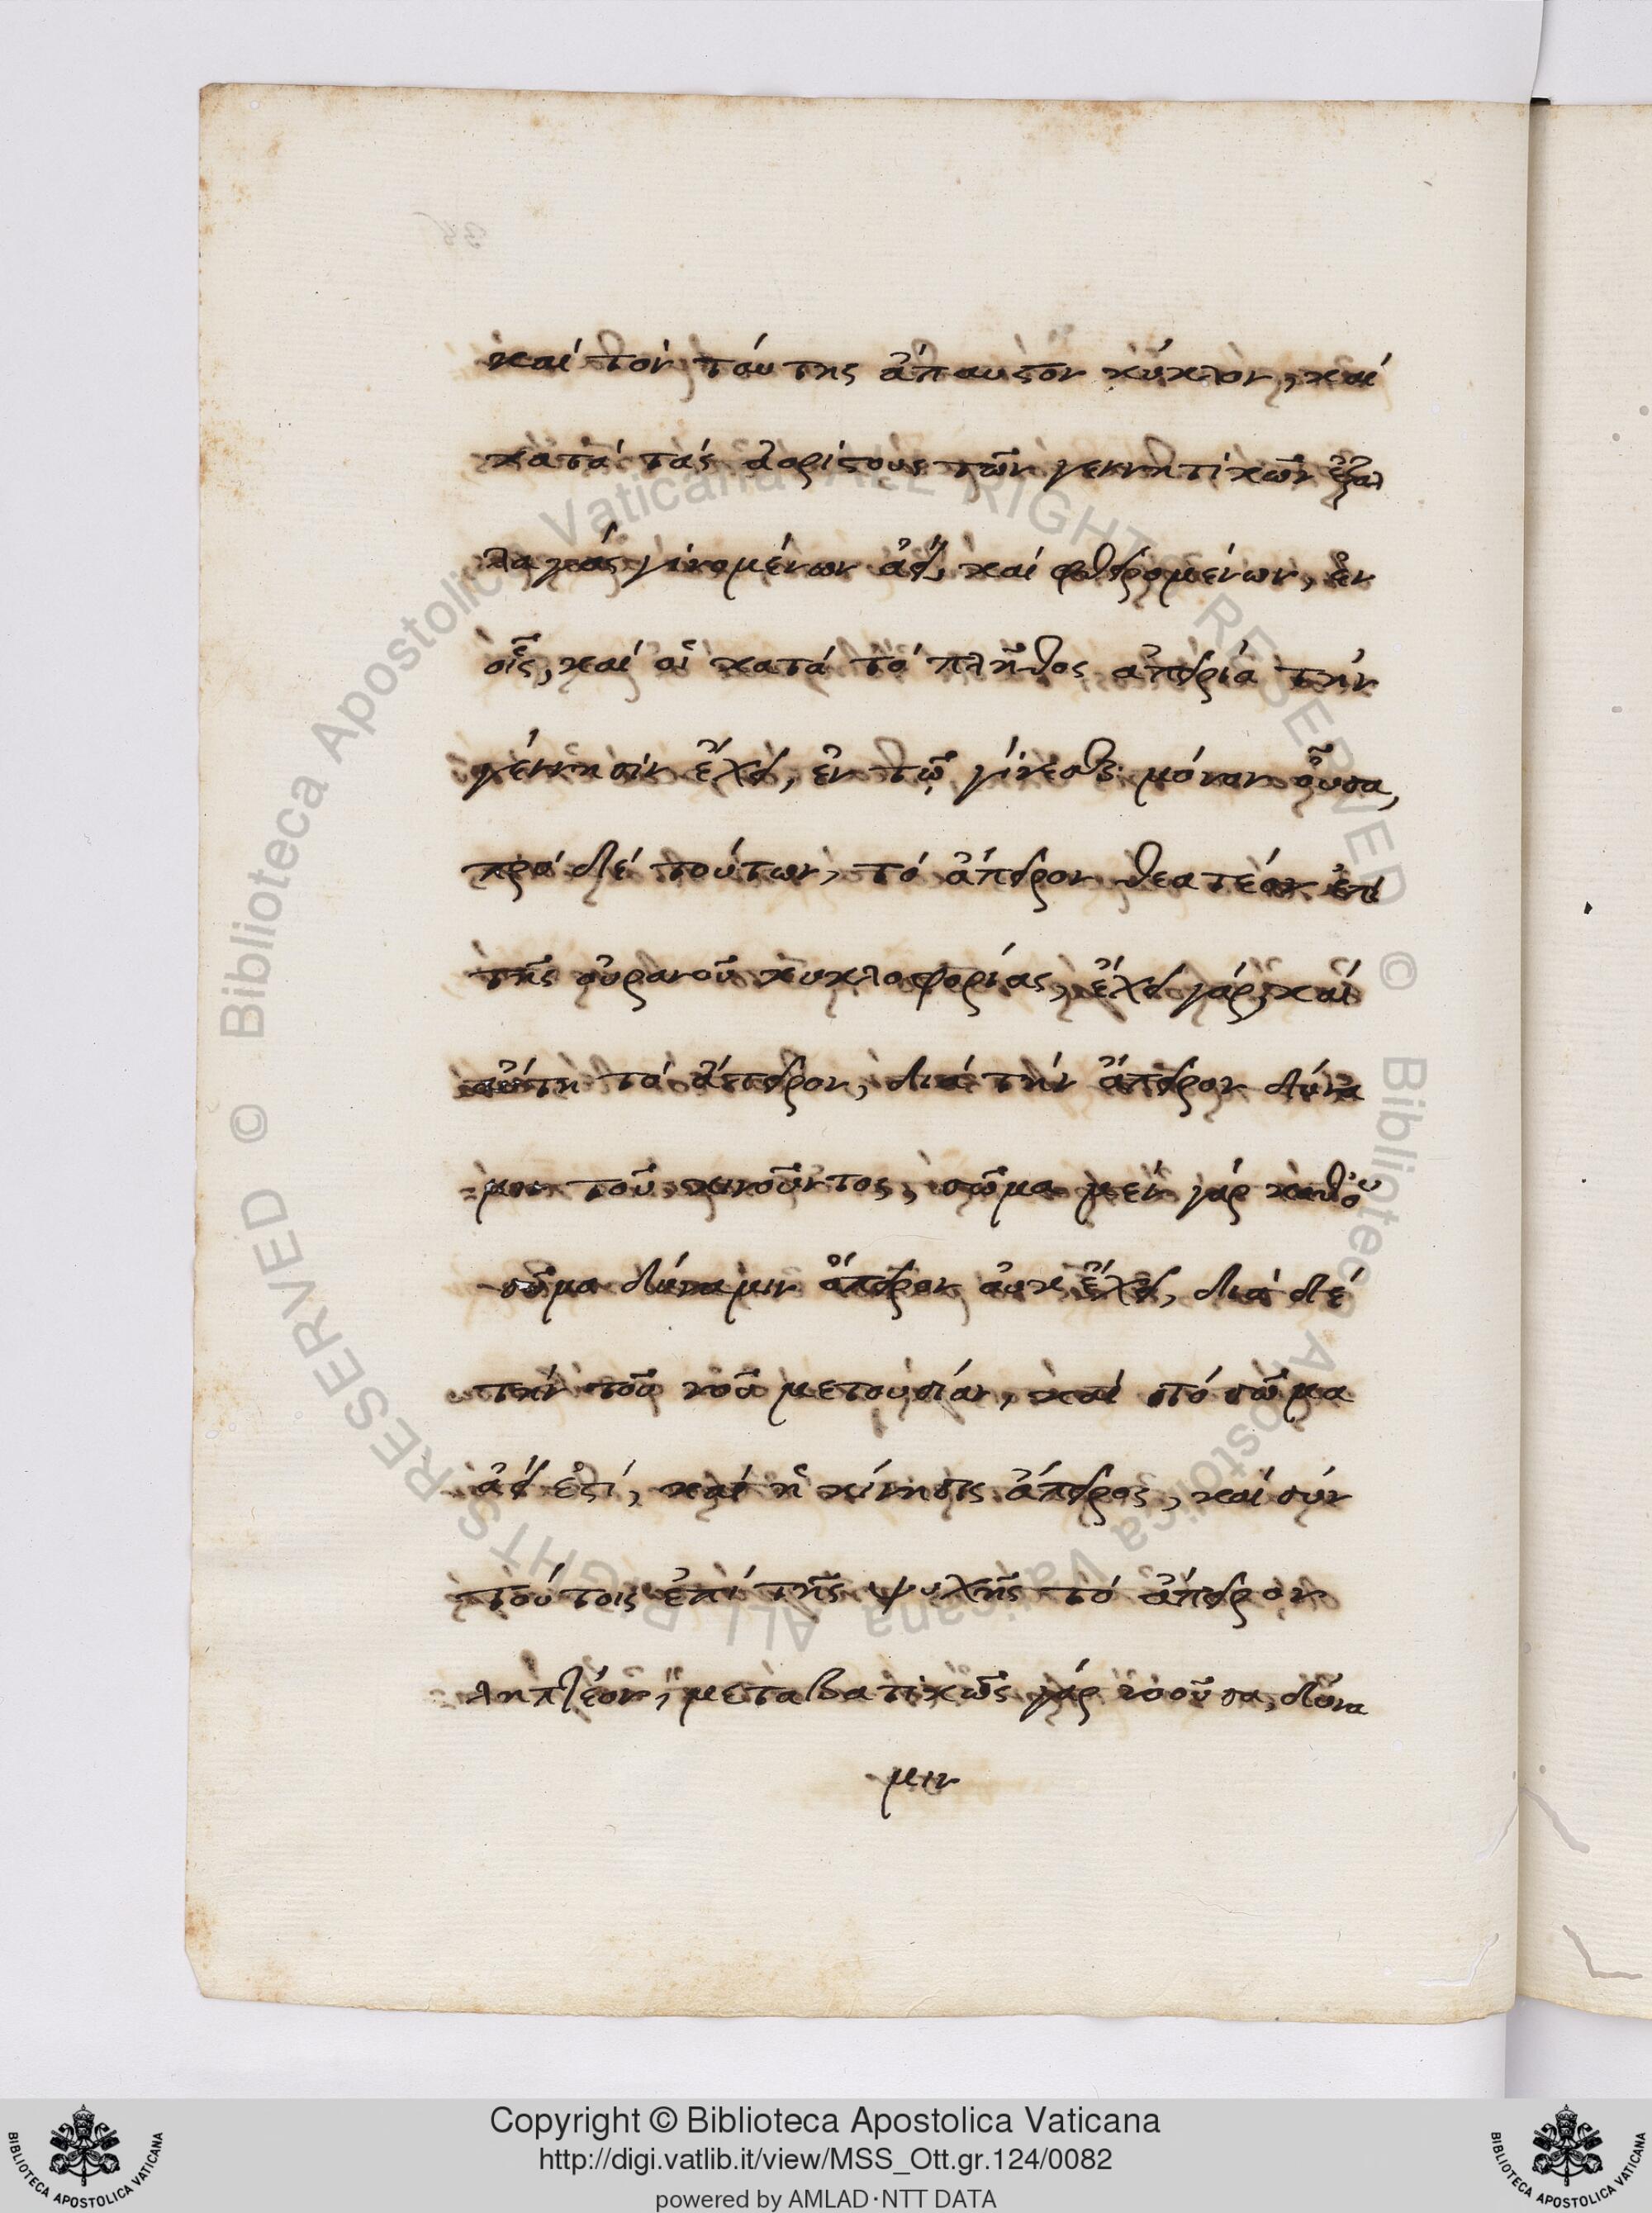 και τὸν ταύτης ἄπαυστον κύκλον, καὶ
κατὰ τὰς ἀορίστους τῶν γεννητικῶν ἐξαλ
λαγὰς γινομένων ἀεὶ, καὶ φθειρομένων, ἐν
οἷς, καὶ ἡ κατὰ τὸ πλῆθος ἀπειρία τὴν
γέννησιν ἔχει, ἐν τῷ γίνεσθαι μόνον οὖσα,
πρὸ δὲ τούτων, τὸ ἄπειρον θεατέον ἐπὶ
τῆς οὐρανοῦ κυκλοφορίας, ἔχει γὰρ καὶ
αὕτη τὸ ἄπειρον, διὰ τὴν ἄπειρον δύνα
μιν τοῦ κινοῦντος, σῶμα μὲν γὰρ καθὸ
σῶμα δύναμιν ἄπειρον οὐκ ἔχει, διὰ δὲ
τὴν τοῦ νοῦ μετουσίαν, καὶ τὸ σῶμα
ἀεί ἐστι, καὶ ἡ κίνησις ἄπειρος, καὶ σὺν
τούτοις ἐπὶ τῆς ψυχῆς τὸ ἄπειρον
ληπτέον, μεταβατικῶς γὰρ νοοῦσα, δύνα
μιν
Copyright © Biblioteca Apostolica Vaticana
http://digi.vatlib.it/view/MSS_Ott.gr.124/0082
powered by AMLAD·NTT DATA